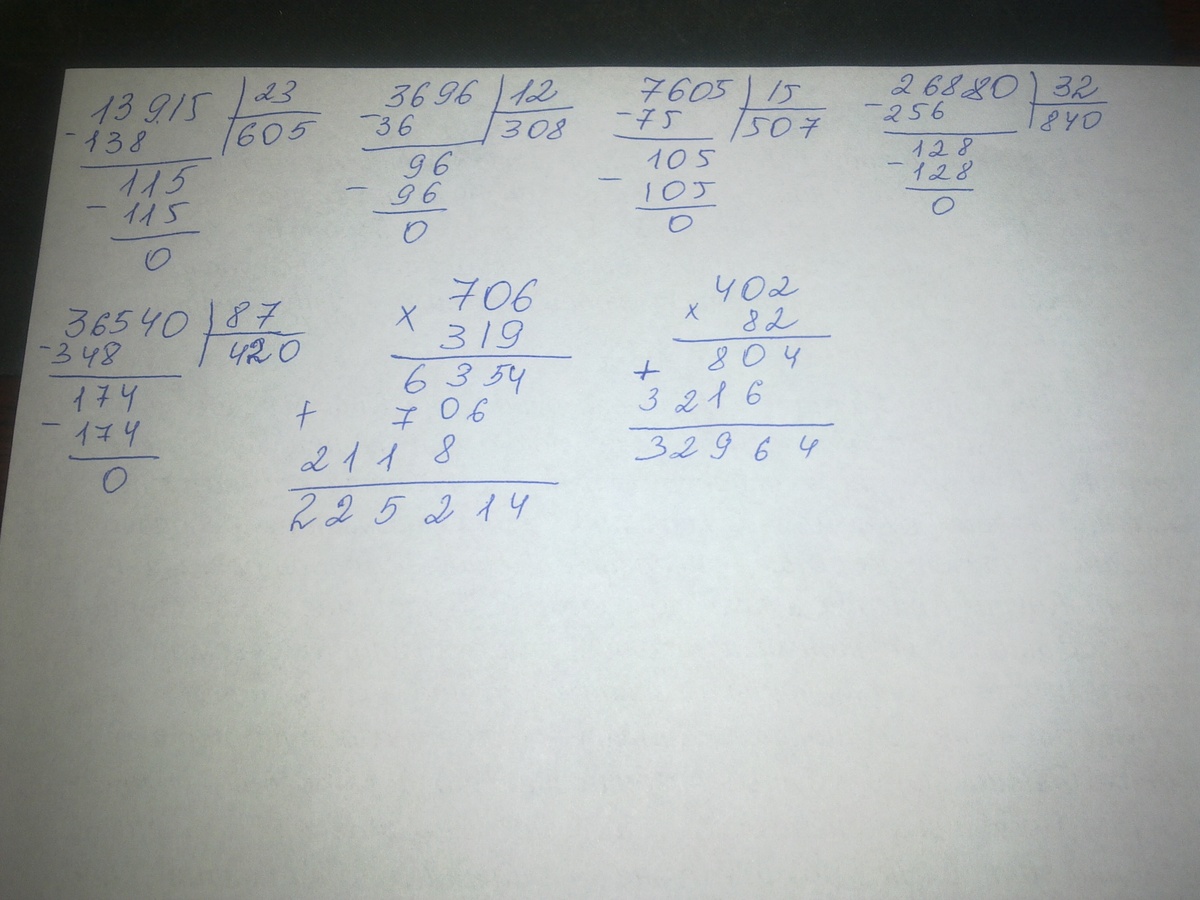 13915 | 23
-138 605
115
- 115
0
3696 | 12
-36 308
96
- 96
0
7605 | 15
-75 507
105
- 105
0
26880 | 32
-256 840
128
-128
0
36540 | 87
-348 420
174
- 174
0
706
x 319
6354
+ 706
2118
225214
402
x 82
804
+
3216
32964